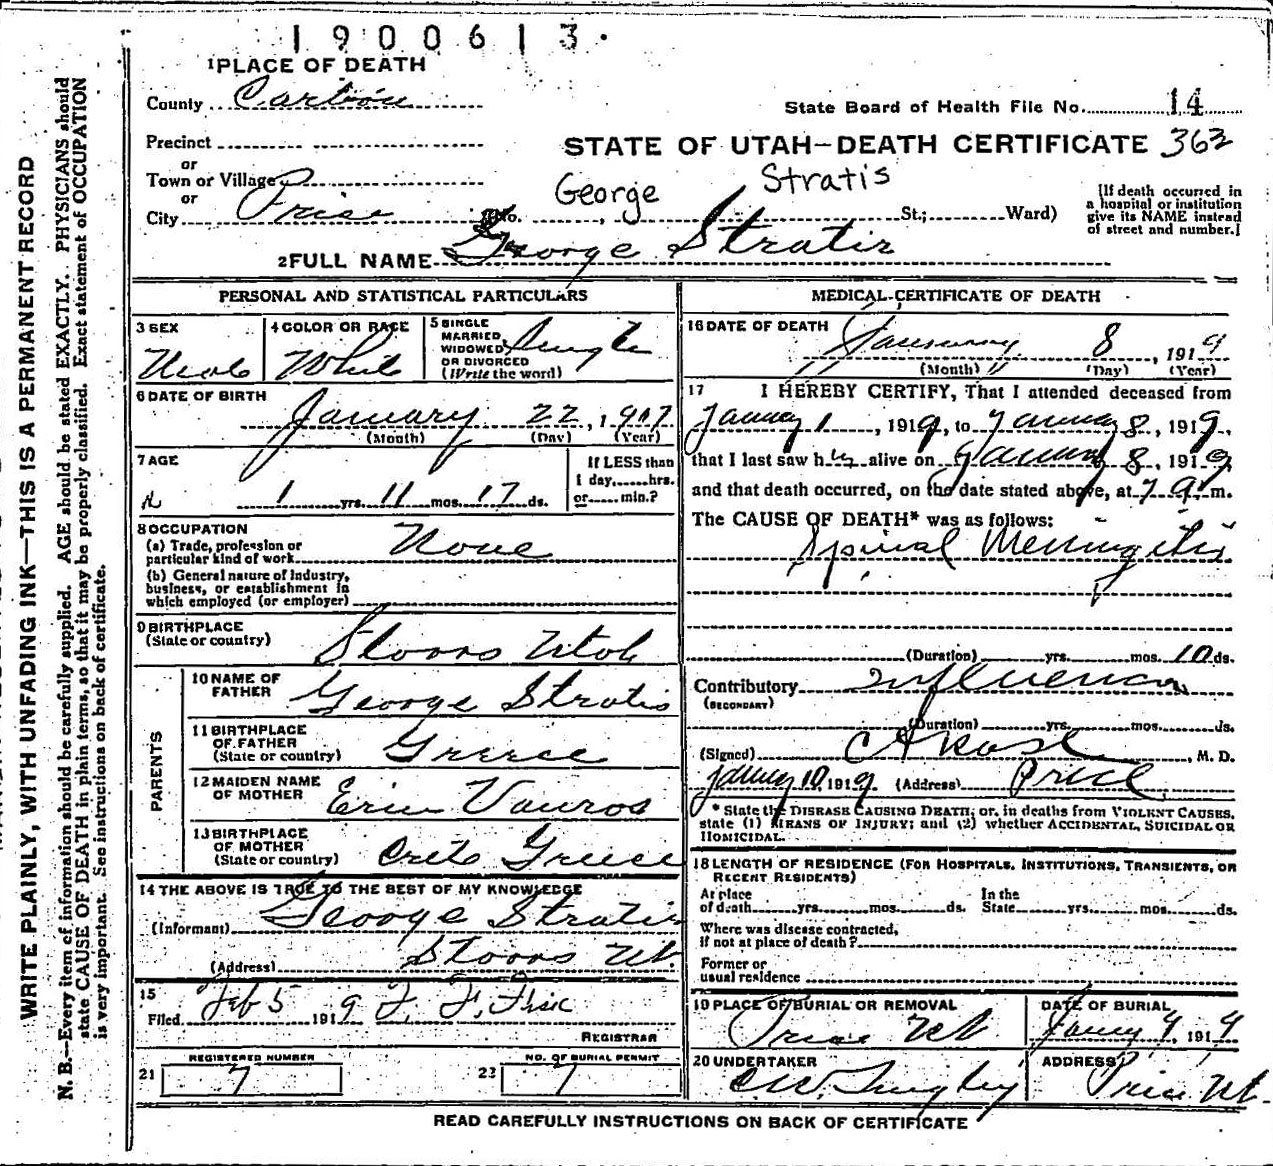 1900613.
1 PLACE OF DEATH
County Carbon
State Board of Health File No. 14
Precinct
STATE OF UTAH—DEATH CERTIFICATE 362
or
Town or Village
or
City Price No. St.; Ward)
George Stratis
[If death occurred in
a hospital or institution
give its NAME instead
of street and number.]
2 FULL NAME George Stratis
PERSONAL AND STATISTICAL PARTICULARS
3 SEX
Male
4 COLOR OR RACE
White
5 SINGLE
MARRIED,
WIDOWED
OR DIVORCED
(Write the word)
Single
6 DATE OF BIRTH
January 22, 1917
(Month) (Day) (Year)
7 AGE
1 yrs. 11 mos. 17 ds.
If LESS than
1 day,......hrs.
or......min.?
8 OCCUPATION
(a) Trade, profession or
particular kind of work None
(b) General nature of Industry,
business, or establishment in
which employed (or employer)
9 BIRTHPLACE
(State or country)
Storrs Utah
PARENTS
10 NAME OF
FATHER
George Stratis
11 BIRTHPLACE
OF FATHER
(State or country)
Greece
12 MAIDEN NAME
OF MOTHER
13 BIRTHPLACE
OF MOTHER
(State or country)
Crete Greece
14 THE ABOVE IS TRUE TO THE BEST OF MY KNOWLEDGE
(Informant) George Stratis
(Address) Storrs Ut
15
Filed Feb 5 1919
REGISTRAR
REGISTERED NUMBER
21 7
NO. OF BURIAL PERMIT
23 7
MEDICAL CERTIFICATE OF DEATH
16 DATE OF DEATH
January 8, 1919
(Month) (Day) (Year)
17 I HEREBY CERTIFY, That I attended deceased from
January 1, 1919, to January 8, 1919,
that I last saw him alive on January 8, 1919
and that death occurred, on the date stated above, at 7 a. m.
The CAUSE OF DEATH* was as follows:
Spinal Meningitis
(Duration) yrs. mos. 10 ds.
Contributory Influenza
(SECONDARY)
(Duration) yrs. mos. ds.
(Signed) , M. D.
January 10, 1919 (Address) Price
* State the DISEASE CAUSING DEATH; or, in deaths from VIOLENT CAUSES,
state (1) MEANS OF INJURY; and (2) whether ACCIDENTAL, SUICIDAL OR
HOMICIDAL.
18 LENGTH OF RESIDENCE (FOR HOSPITALS, INSTITUTIONS, TRANSIENTS, OR
RECENT RESIDENTS)
At place
of death yrs. mos. ds.
In the
State yrs. mos. ds.
Where was disease contracted,
if not at place of death?
Former or
usual residence
19 PLACE OF BURIAL OR REMOVAL
Price Ut
DATE OF BURIAL
1919
20 UNDERTAKER
ADDRESS
Price Ut.
READ CAREFULLY INSTRUCTIONS ON BACK OF CERTIFICATE
WRITE PLAINLY, WITH UNFADING INK—THIS IS A PERMANENT RECORD
N. B.—Every item of information should be carefully supplied. AGE should be stated EXACTLY. PHYSICIANS should
state CAUSE OF DEATH in plain terms, so that it may be properly classified. Exact statement of OCCUPATION
is very important. See instructions on back of certificate.